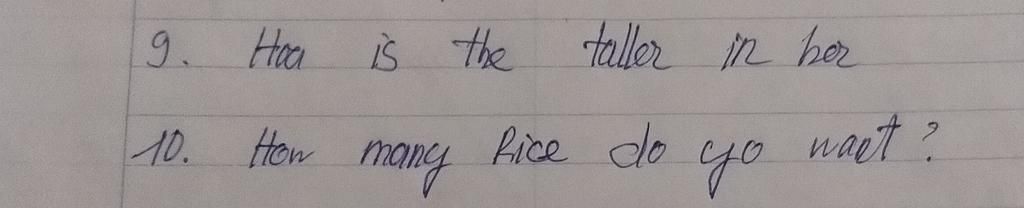 9. Hoa is the taller in her
10. How many Rice do yo want?